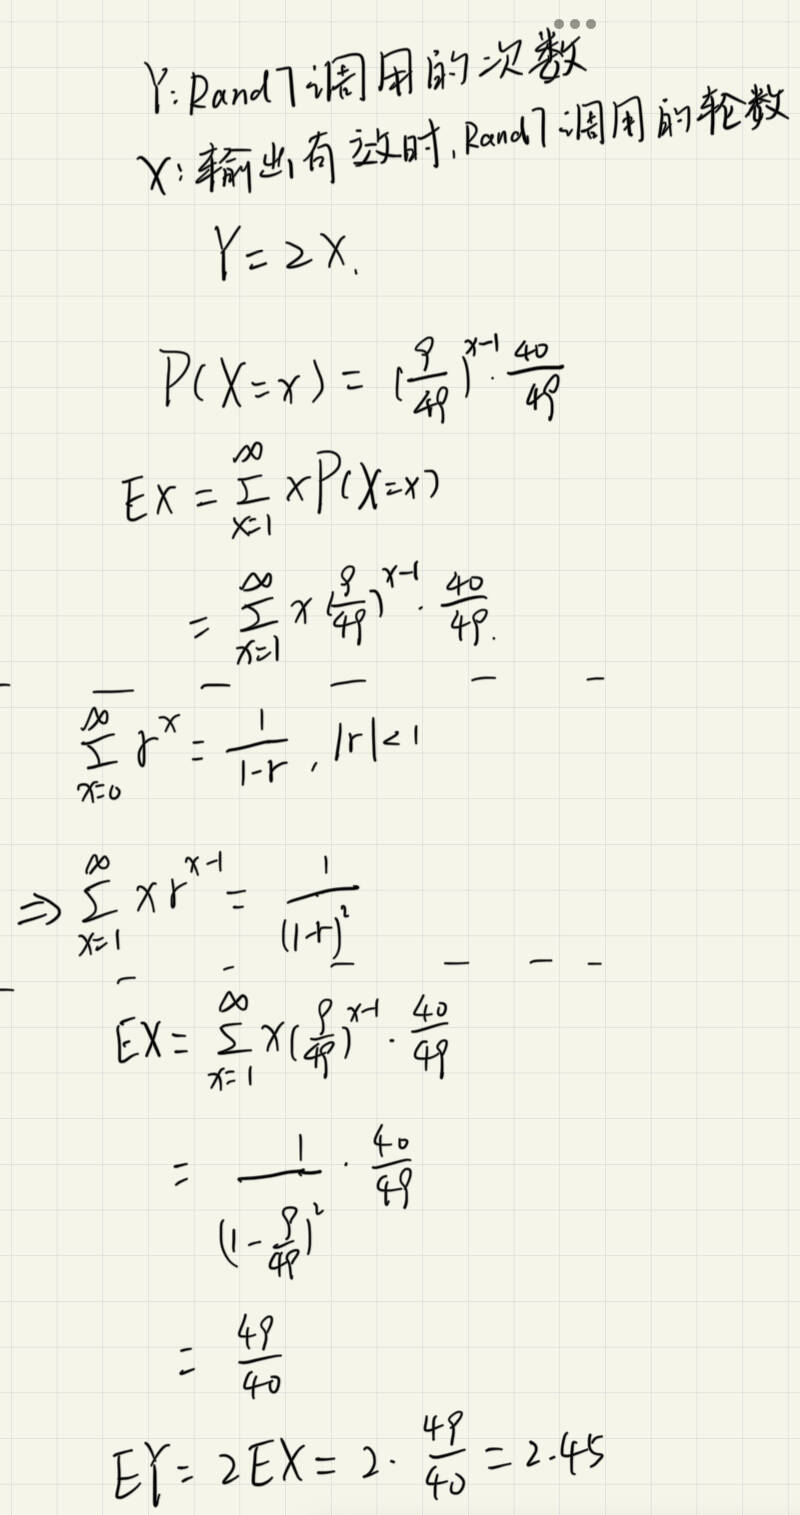 Y: Rand7调用的次数
X: 输出有效时, Rand7调用的轮数
Y = 2X.
P(X=x) = (9/49)^{x-1} · 40/49
EX = ∑_{x=1}^{∞} xP(X=x)
= ∑_{x=1}^{∞} x(9/49)^{x-1} · 40/49.
∑_{x=0}^{∞} r^x = 1/(1-r), |r|<1
⇒ ∑_{x=1}^{∞} x r^{x-1} = 1/(1-r)^2
EX = ∑_{x=1}^{∞} x(9/49)^{x-1} · 40/49
= 1/(1-9/49)^2 · 40/49
= 49/40
EY = 2EX = 2 · 49/40 = 2.45